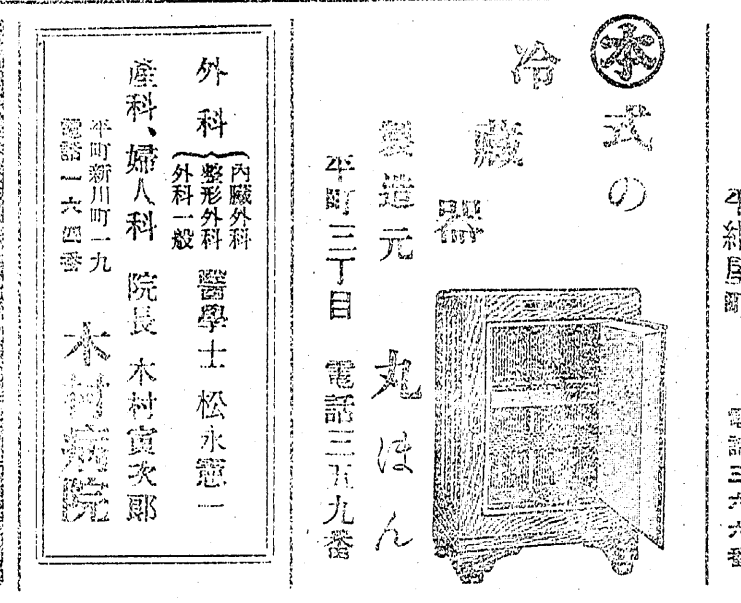 本式の
冷蔵器
製造元 丸ほん
平町三丁目 電話三五九番
外科
内臓外科
整形外科
外科一般
醫學士 松永憲一
産科、婦人科 院長 木村寅次郎
平町新川町一九
電話一六四番
木村病院